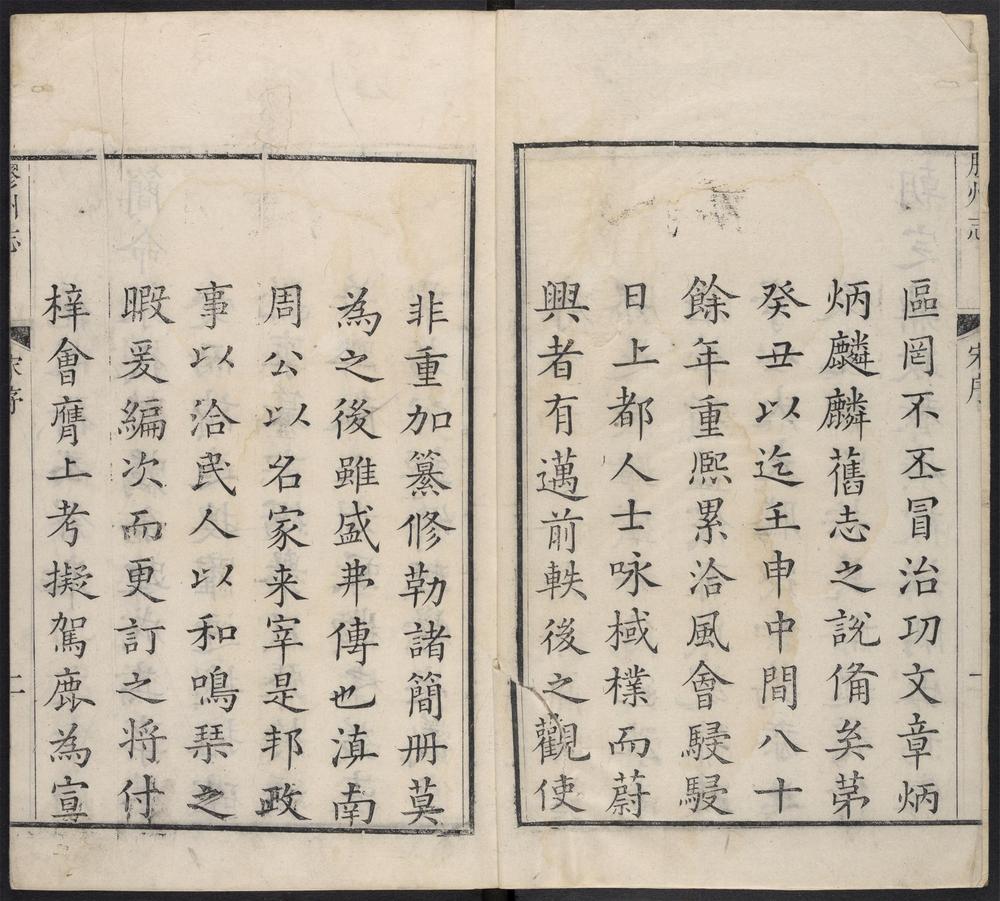 膠州志
宋序
一
區罔不丕冒治功文章炳
炳麟麟舊志之說備矣苐
癸丑以迄壬申中間八十
餘年重熈累洽風會駸駸
日上都人士咏棫樸而蔚
興者有邁前軼後之觀使
非重加纂修勒諸簡册莫
為之後雖盛弗傳也滇南
周公以名家来宰是邦政
事以洽民人以和鳴琹之
暇爰編次而更訂之将付
梓會膺上考擬駕鹿為宣
膠州志
宋序
二